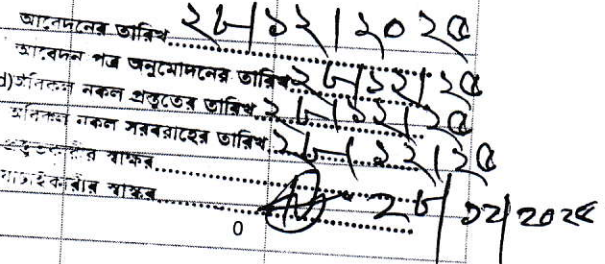 আবেদনের তারিখ ২৮/১২/২০২৫
আবেদন পত্র অনুমোদনের তারিখ ২৮/১২/২৫
d) অবিকল নকল প্রস্তুতের তারিখ ২৮/১২/২৫
অবিকল নকল সরবরাহের তারিখ ২৮/১২/২৫
স্বাক্ষর
যাচাইকারীর স্বাক্ষর ২৮/১২/২০২৫
0